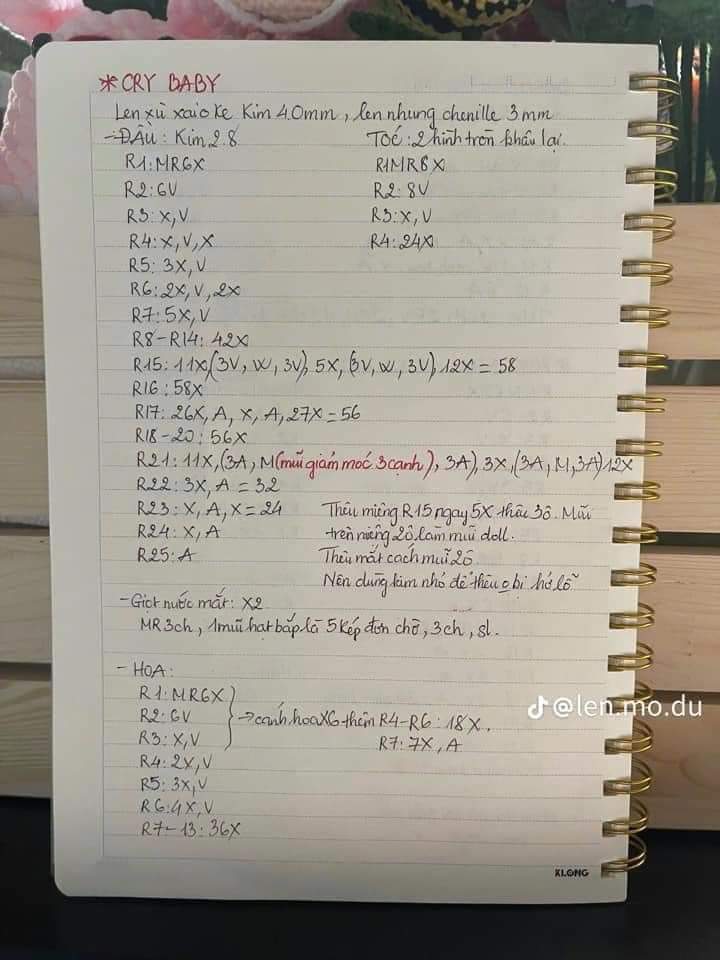 *CRY BABY
Len xù xaioke Kim 4.0mm, len nhung chenille 3mm
-ĐẦU: Kim 2.8
R1: MR6X
R2: 6V
R3: X, V
R4: X, V, X
R5: 3X, V
R6: 2X, V, 2X
R7: 5X, V
R8-R14: 42X
TOC: 2 hình tròn khâu lại.
R1MR8X
R2: 8V
R3: X, V
R4: 24X
R15: 11X,(3V, W, 3V), 5X, (3V, W, 3V), 12X = 58
R16: 58X
R17: 26X, A, X, A, 27X = 56
R18-20: 56X
R21: 11X, (3A, M(mũi giảm móc 3 cạnh), 3A), 3X, (3A, M, 3A) 12X
R22: 3X, A = 32
R23: X, A, X = 24
R24: X, A
R25: A
Thêu miệng R15 ngay 5X thêu 3ô. Mũi
trên miệng 2ô làm mũi doll.
Thêu mắt cách mũi 2ô
Nên dùng tăm nhỏ để thêu o bị hở lỗ
- Giọt nước mắt: X2
MR 3ch, 1 mũi hạt bắp là 5 kép đơn chờ, 3 ch, sl.
- HOA:
R1: MR6X
R2: 6V
R3: X, V
→ cánh hoa X6 thêm R4-R6: 18X.
R7: 7X, A
R4: 2X, V
R5: 3X, V
R6: 4X, V
R7-13: 36X
@len.mo.du
KLONG